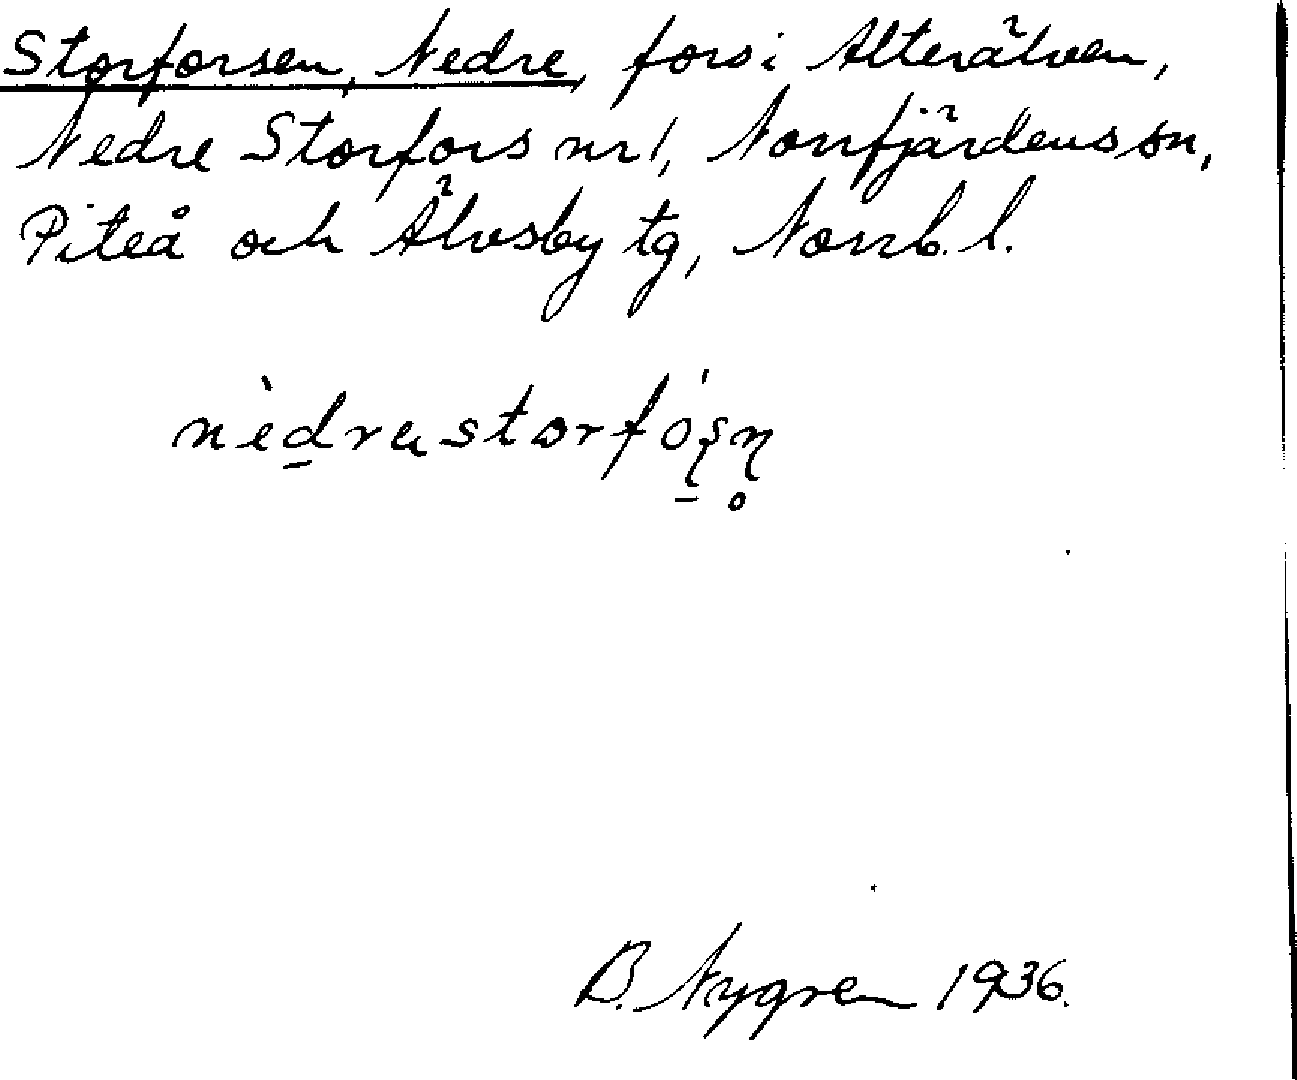 Storforsen, Nedre, fors i Alterälven,
Nedre Storfors nr 1, Norrfjärdens sn,
Piteå och Älvsby tg, Norrb. l.
nèd̠rastorfó̠ʂɳ̥
B. Nygren 1936.